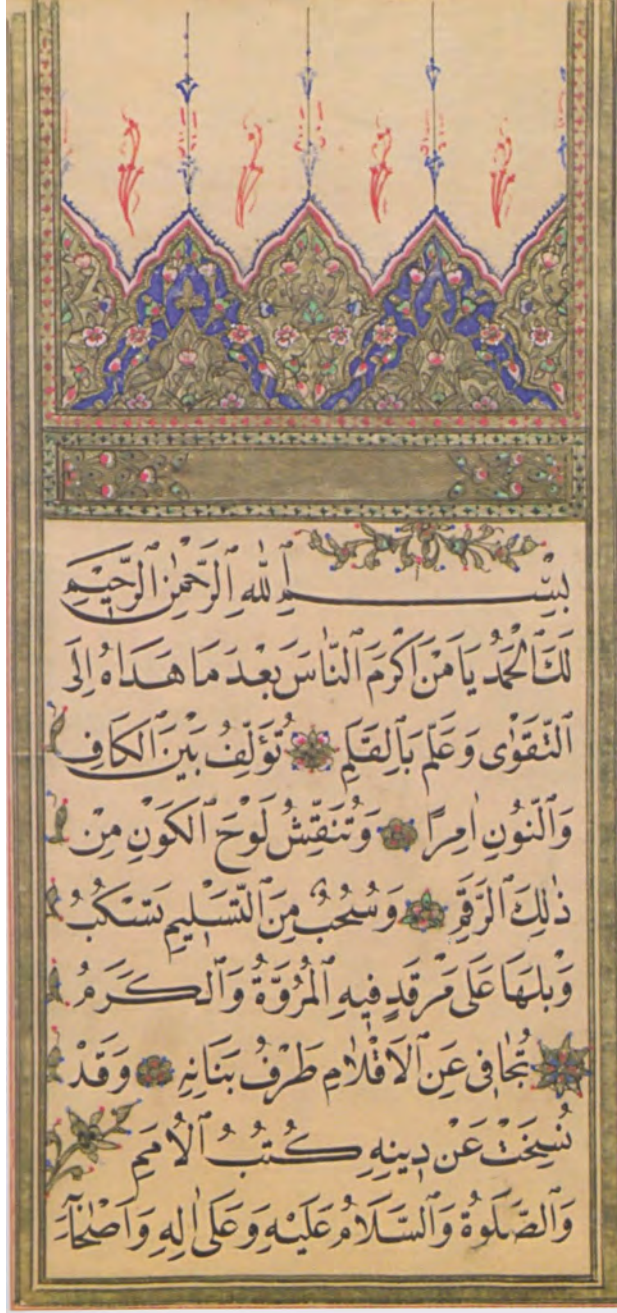 بِسْمِ ٱللهِ ٱلرَّحْمٰنِ ٱلرَّحِيمِ
لَكَ ٱلْحَمْدُ يَا مَنْ اَكْرَمَ ٱلنَّاسَ بَعْدَ مَا هَدَاهُ اِلَى
ٱلتَّقْوٰى وَعَلَّمَ بَٱلِقَلَمِ تُؤَلِّفُ بَيْنَ ٱلْكَافِ
وَٱلنُّونِ اٰمِرًا وَتُنَقِّشُ لَوْحَ ٱلْكَوْنِ مِنْ
ذٰلِكَ ٱلرَّقَمِ وَسُحُبٌ مِنَ ٱلتَّسْلِيمِ تَسْكُبُ
وَبْلَهَا عَلَى مَرْقَدٍ فِيهِ ٱلْمُرُوَّةُ وَٱلْكَرَمُ
تُجَافِى عَنِ ٱلْاَقْلَامِ طَرْفُ بَنَانِهِ وَقَدْ
نُسِخَتْ عَنْ دِينِهِ كُتُبُ ٱلْاُمَمِ
وَٱلصَّلٰوةُ وَٱلسَّلَامُ عَلَيْهِ وَعَلَى اٰلِهِ وَاَصْحَابِهِ